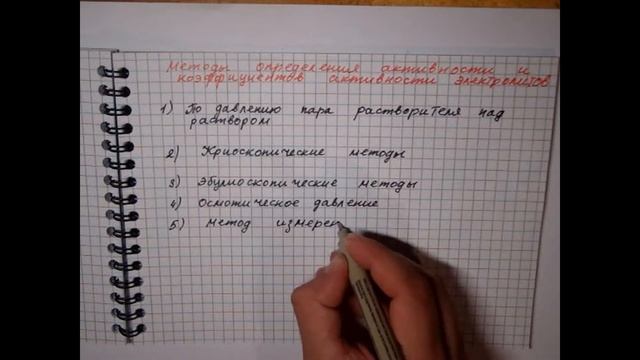 Методы определения активности и
коэффициентов активности электролитов
1) По давлению пара растворителя над
раствором
2) Криоскопические методы
3) Эбулиоскопические методы
4) Осмотическое давление
5) Метод измерен